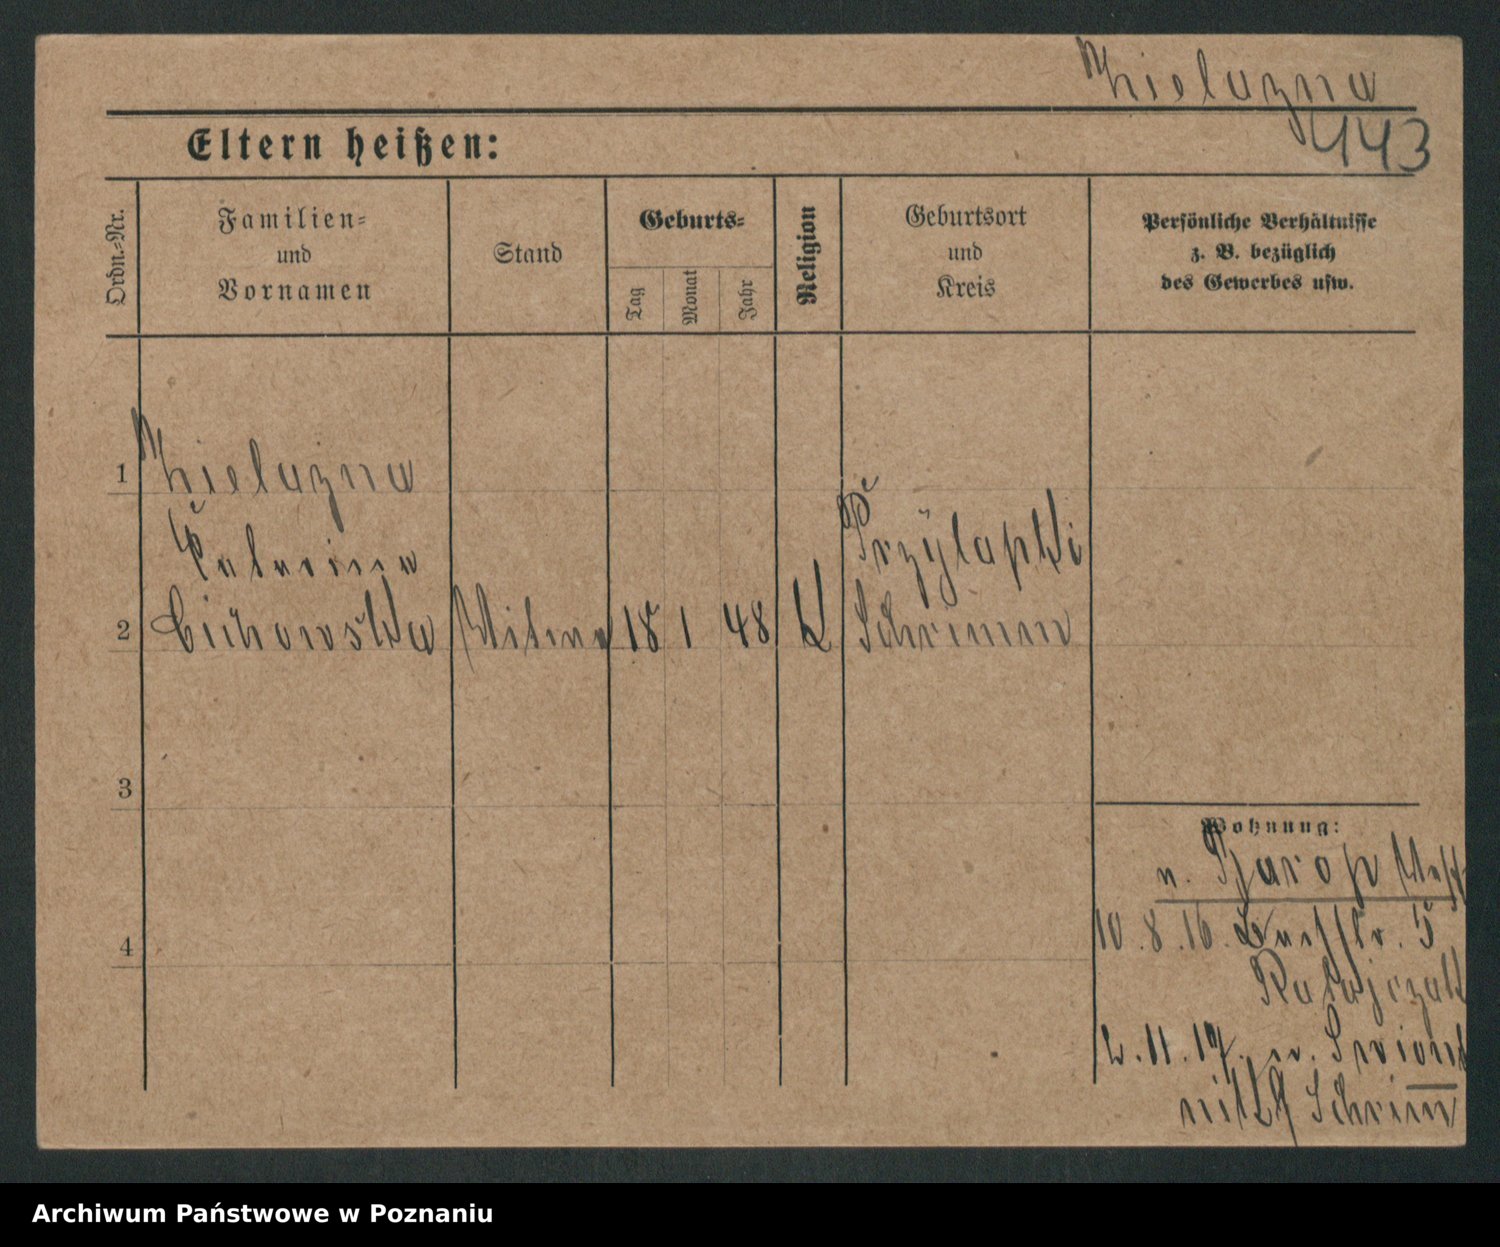 Zielazna
443
Eltern heißen:
Ordn.-Nr.
Familien-
und
Vornamen
Stand
Geburts-
Tag
Monat
Jahr
Religion
Geburtsort
und
Kreis
Persönliche Verhältnisse
z. B. bezüglich
des Gewerbes usw.
1
Zielazna
Katarina
Przylapki
2
Cichowska
Witwe
18
1
48
K
Schrimm
3
Wohnung:
v.
10.8.16.
5
4
Ratajczak
2.11.17.
Schrimm
Archiwum Państwowe w Poznaniu